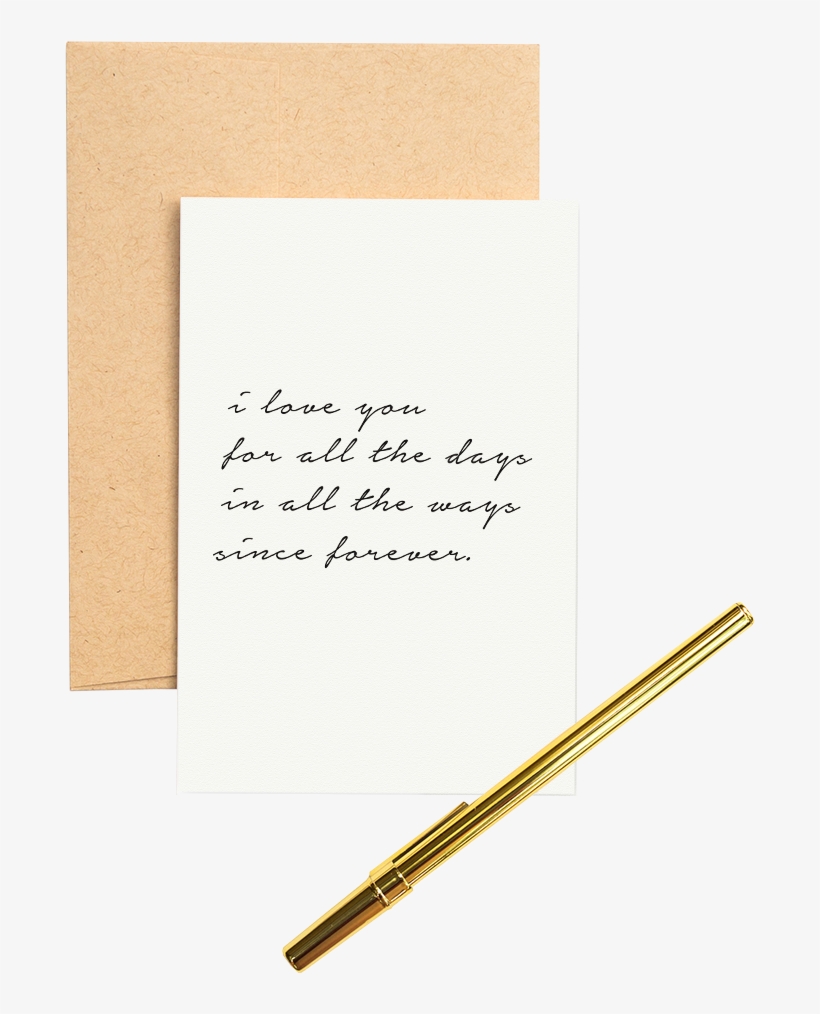 i love you
for all the days
in all the ways
since forever.